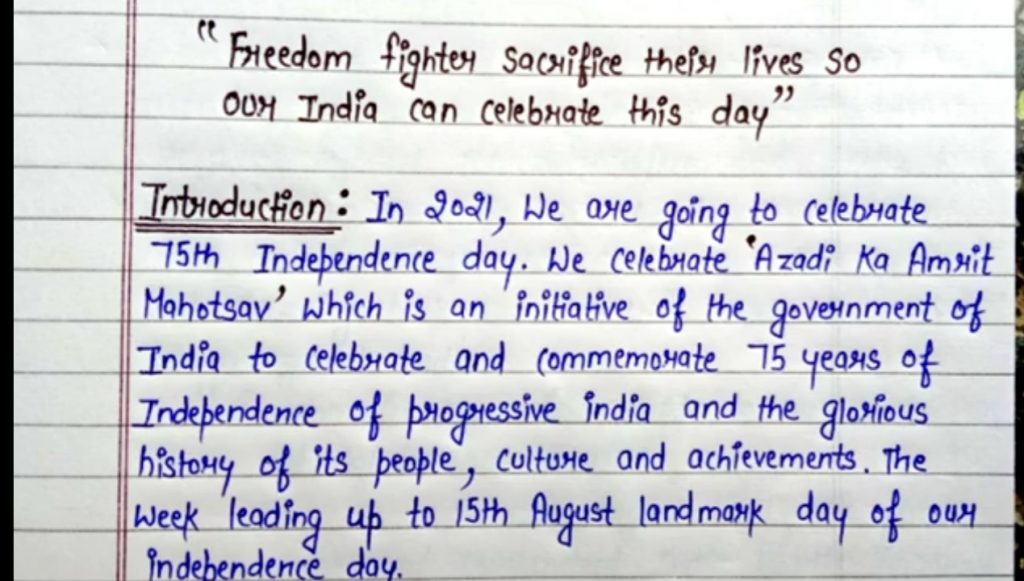 "Freedom fighter sacrifice their lives so
our India can celebrate this day"
Introduction: In 2021, We are going to celebrate
75th Independence day. We celebrate 'Azadi Ka Amrit
Mahotsav' which is an initiative of the government of
India to celebrate and commemorate 75 years of
Independence of progressive india and the glorious
history of its people, culture and achievements. The
week leading up to 15th August landmark day of our
independence day.